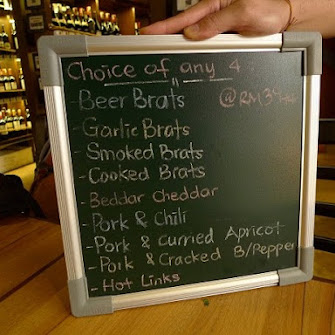 Choice of any 4
"
- Beer Brats @RM39
- Garlic Brats
- Smoked Brats
- Cooked Brats
- Beddar cheddar
- Pork & Chili
- Pork & curried Apricot
- Pork & Cracked B/Pepper
- Hot Links